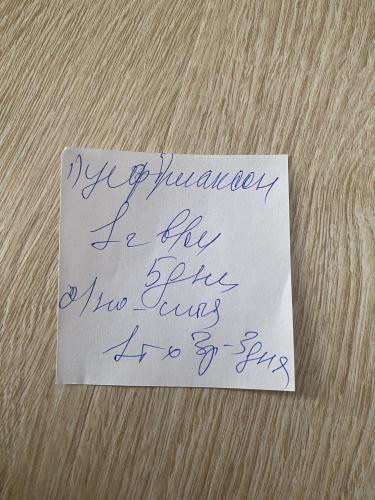 1) Цефтриаксон
1 г в/м
5 дней
2) Но-шпа
1т х 3р - 3 дня